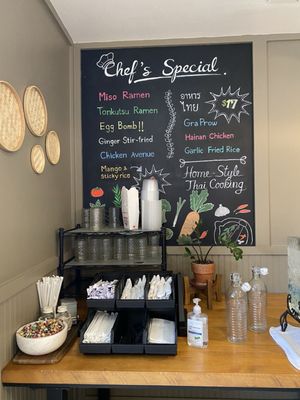 Chef's Special
Miso Ramen
Tonkutsu Ramen
Egg Bomb!!
Ginger Stir-fried
Chicken Avenue
Mango &
sticky rice
อาหาร
ไทย
$17
Gra Prow
Hainan Chicken
Garlic Fried Rice
Home-Style
Thai Cooking